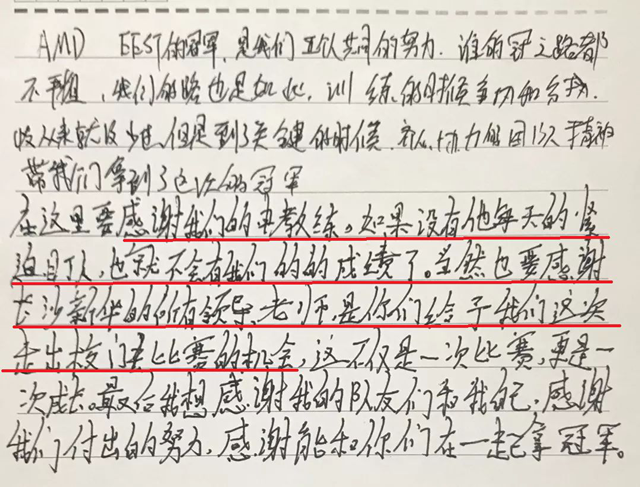 AMD EEST的冠军,是我们五人共同的努力.谁的冠之路都
不平坦,我们的路也是如此,训练的时候争切和分歧.
从来就没少过.但是到了关键的时候.齐心协力的团队精神
带我们拿到了这次的冠军
在这里要感谢我们的教练。如果没有他每天的
迫训人,也就不会有我们的的成绩了。当然也要感谢
长沙新华的所有领导、老师,是你们给予我们这次
走出校门去比赛的机会,这不仅是一次比赛,更是一
次成长。最后我想感谢我的队友们和我自己,感谢
我们付出的努力,感谢能和你们在一起拿冠军。